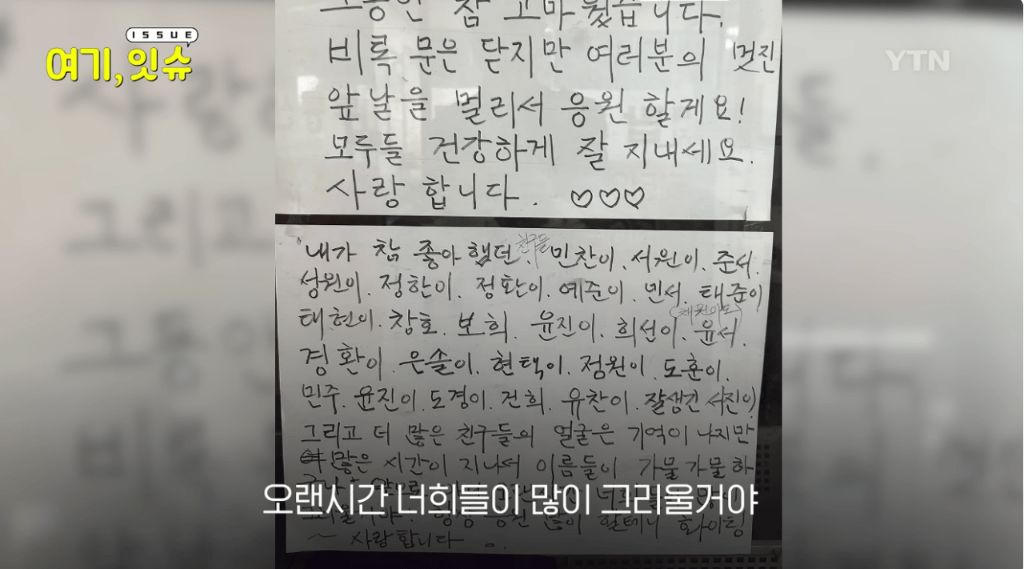 ISSUE
여기, 잇슈
YTN
그동안 참 고마웠습니다.
비록 문은 닫지만 여러분의 멋진
앞날을 멀리서 응원 할게요!
모두들 건강하게 잘 지내세요.
사랑 합니다. ♡♡♡
내가 참 좋아했던 친구들 민찬이. 서원이. 준서.
상원이. 정한이. 정환이. 예준이. 민서. 태준이
태현이. 창호. 보희. 윤진이. 희선이. 윤서.
경환이. 은솔이. 현택이. 정원이. 도훈이.
민주. 윤진이. 도경이. 건희. 유찬이. 잘생긴 서진이
그리고 더 많은 친구들의 얼굴은 기억이 나지만
많은 시간이 지나서 이름들이 가물가물하
오랜시간 너희들이 많이 그리울거야
많이 할테니 화이팅
~ 사랑합니다